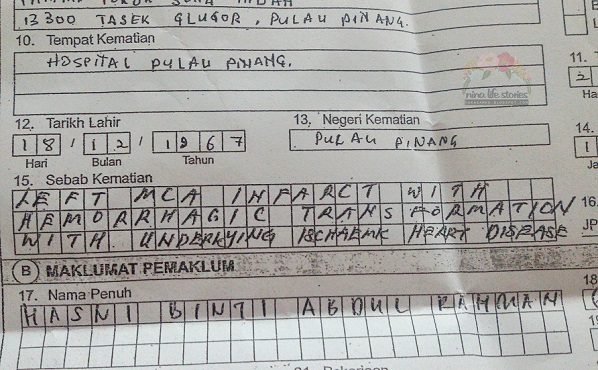 13300 TASEK GLUGOR, PULAU PINANG.
10. Tempat Kematian
HOSPITAL PULAU PINANG.
11.
nina life stories
Ha
12. Tarikh Lahir
18 / 12 / 1967
Hari Bulan Tahun
13. Negeri Kematian
PULAU PINANG
14.
15. Sebab Kematian
LEFT MCA INFARCT WITH
HEMORRHAGIC TRANSFORMATION
WITH UNDERLYING ISCHAEMIC HEART DISEASE
16.
JP
B MAKLUMAT PEMAKLUM
17. Nama Penuh
HASNI BINTI ABDUL RAHMAN
18